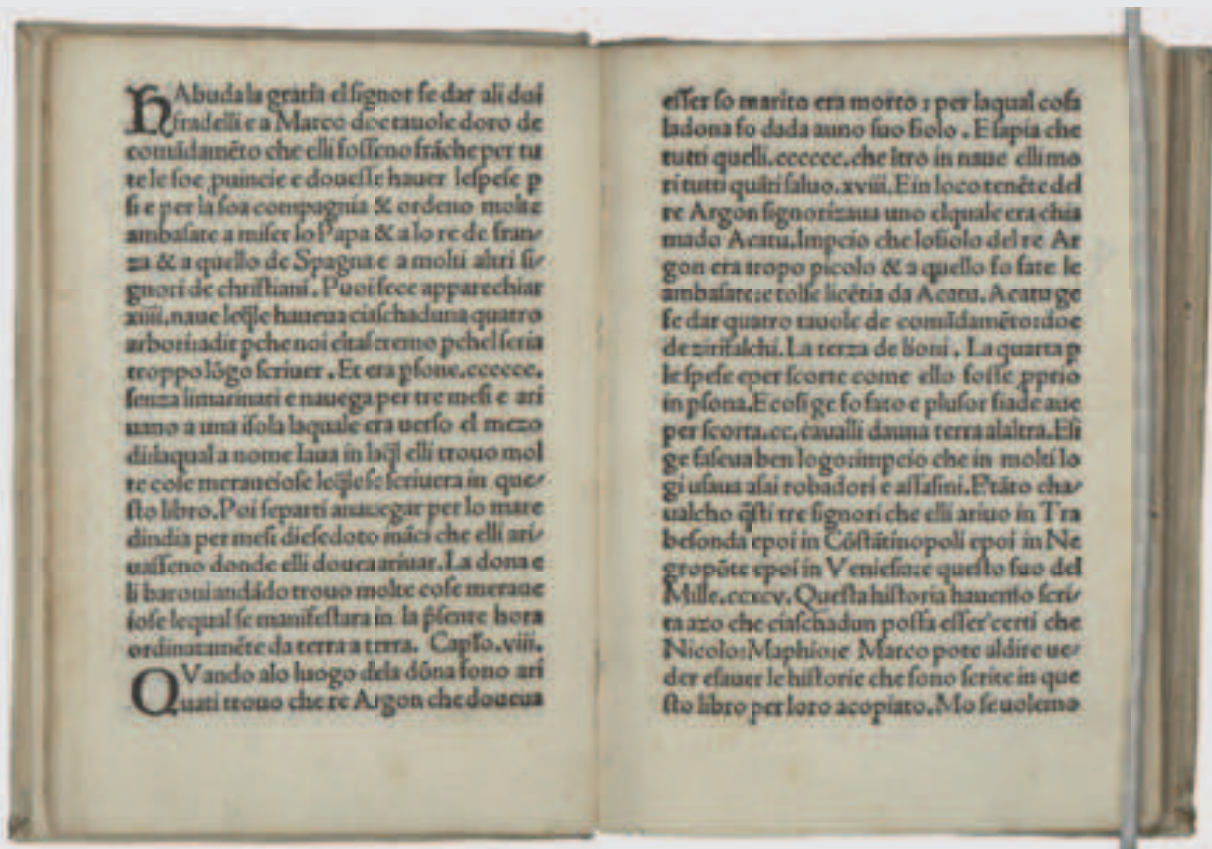 HAbuda la gratia el signor fe dar ali doi
fradelli e a Marco doe tauole doro de
comādamēto che elli fosseno frāche per tu
te le soe puincie e douesse hauer le spese p
si e per la soa compagnia & ordeno molte
ambasate a miser lo Papa & a lo re de fran/
za & a quello de Spagna e a molti altri si/
gnori de christiani. Puoi fece apparechiar
xiiii.naue leq̄le haueua ciaschaduna quatro
arbori
troppo lōgo scriuer. Et era psone.cccccc.
senza li marinari e nauega per tre mesi e ari
uano a una isola laquale era uerso el mezo
di laqual a nome Iaua in laq̄l elli trouo mol
te cose meraueiose leq̄le se scriuera in que/
sto libro. Poi se parti a nauegar per lo mare
dindia per mesi disedoto māci che elli ari/
uasseno donde elli douea ariuar. La dona e
li baroni andādo trouo molte cose meraue
iose lequal se manifestara in la p̄sente hora
ordinatamēte da terra a terra. Capło.viii.
QVando alo luogo dela dōna sono ari
uati trouo che re Argon che doueua
esser so marito era morto : per laqual cosa
la dona fo dada a uno suo fiolo . E sapia che
tutti quelli.cccccc.che ītro in naue elli mo
ri tutti quāti saluo.xviii. E in loco tenēte del
re Argon signorizaua uno elquale era chia
mado Acatu. Impcio che lo fiolo del re Ar
gon era tropo picolo & a quello fo fate le
ambasate: e tolse licētia da Acatu. Acatu ge
fe dar quatro tauole de comādamēto: doe
de zirifalchi. La terza de lioni . La quarta p
le spese e per scorte come ello fosse pprio
in psona. E cosi ge fo fato e plusor fiade aue
per scorta.cc.caualli da una terra alaltra. E si
ge faseua ben logo: impcio che in molti lo
gi usaua asai robadori e assasini. E tāto cha/
ualcho q̄sti tre signori che elli ariuo in Tra
besonda e poi in Cōstātinopoli e poi in Ne
gropōte e poi in Veniesia: e questo fuo del
Mille.ccxcv. Questa historia hauemo scri/
ta azo che ciaschadun possa esser certi che
Nicolo: Maphio: e Marco pote aldire ue/
der e sauer le historie che sono scrite in que
sto libro per loro acopiato. Mo se uolemo